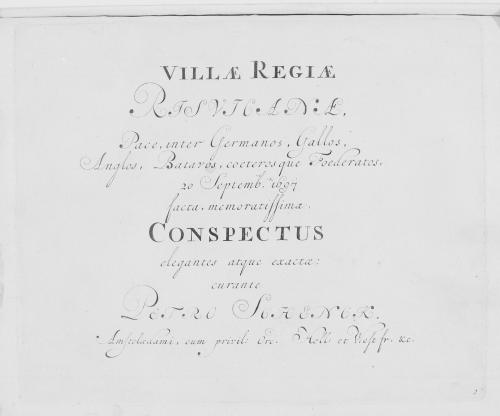 VILLÆ REGIÆ
RISVICANÆ,
Pace, inter Germanos, Gallos,
Anglos, Batavos, coeterosque Foederatos,
20 Septemb. 1697
facta, memoratissimæ.
CONSPECTUS
elegantes atque exactæ:
curante
PETRO SCHENCK.
Amstelædami, cum privil: Ord. Holl: et Westfr. &c.
2